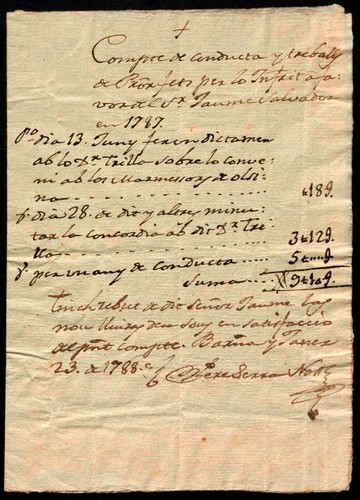 +
Compte de conducta y treballs
de Prófets per lo Infrit a fa-
vor del Sr. Jaume Salvador
en 1787.
Po. dia 13. Juny fer en dictamen
ab lo Dr. Trilla sobre lo conve-
ni ab los Marmessors de Olsi-
na - - - - - - - ʟ 18 ϑ.
p. dia 28. de dit y altres minu-
tar la concordia ab dit Dr. Tri-
lla - - - - - - - 3 ʟ 12 ϑ.
p. per un any de conducta - - - 5 ʟ - - ϑ.
Suma - - - 9 ʟ 10 ϑ.
Tinch rebut de dit Señor Jaume las
nou lliuras deu sous en satisfacció
del pnt. compte. Barna. y Janer
23. de 1788.
Pere Serra Nott.